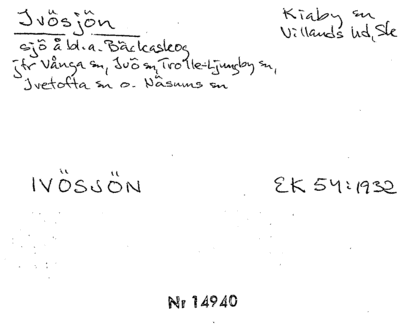 Ivösjön
Kiaby sn
Villands hd, Sk
sjö å bl.a. Bäckaskog
jfr Vånga sn, Ivö sn, Trolle-Ljungby sn,
Ivetofta sn o. Näsums sn
IVÖSJÖN
EK 54:1932
Nr 14940